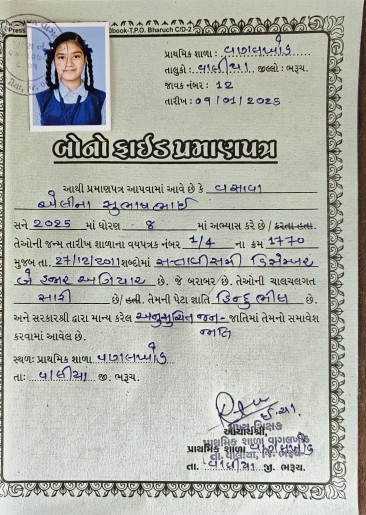 પ્રાથમિક શાળા : વાગલખોડ
તાલુકો : વાલીયા જીલ્લો : ભરૂચ.
જાવક નંબર : 12
તારીખ : 09/01/2025
બોનોફાઈડ પ્રમાણપત્ર
આથી પ્રમાણપત્ર આપવામાં આવે છે કે વસાવા
સુભાષભાઈ
સને 2025 માં ધોરણ 8 માં અભ્યાસ કરે છે / કરતા હતા.
તેઓની જન્મ તારીખ શાળાના વયપત્રક નંબર 1/4 ના ક્રમ 1770
મુજબ તા. 27/12/2011 શબ્દોમાં સત્તાવીસમી ડિસેમ્બર
બે હજાર અગિયાર છે. જે બરાબર છે. તેઓની ચાલચલગત
સારી છે/હતી. તેમની પેટા જ્ઞાતિ હિન્દુ ભીલ છે.
અને સરકારશ્રી દ્વારા માન્ય કરેલ અનુસુચિત જન- જાતિમાં તેમનો સમાવેશ
કરવામાં આવેલ છે. જાતિ
સ્થળ: પ્રાથમિક શાળા વાગલખોડ
તા: વાલીયા જી. ભરૂચ.
ઈ.ચા.
મુખ્ય શિક્ષક
આચાર્યશ્રી,
પ્રાથમિક શાળા વાગલખોડ
તા. વાલીયા, જિ. ભરૂચ
પ્રાથમિક શાળા વાગલખોડ
તા. વાલીયા જી. ભરૂચ.